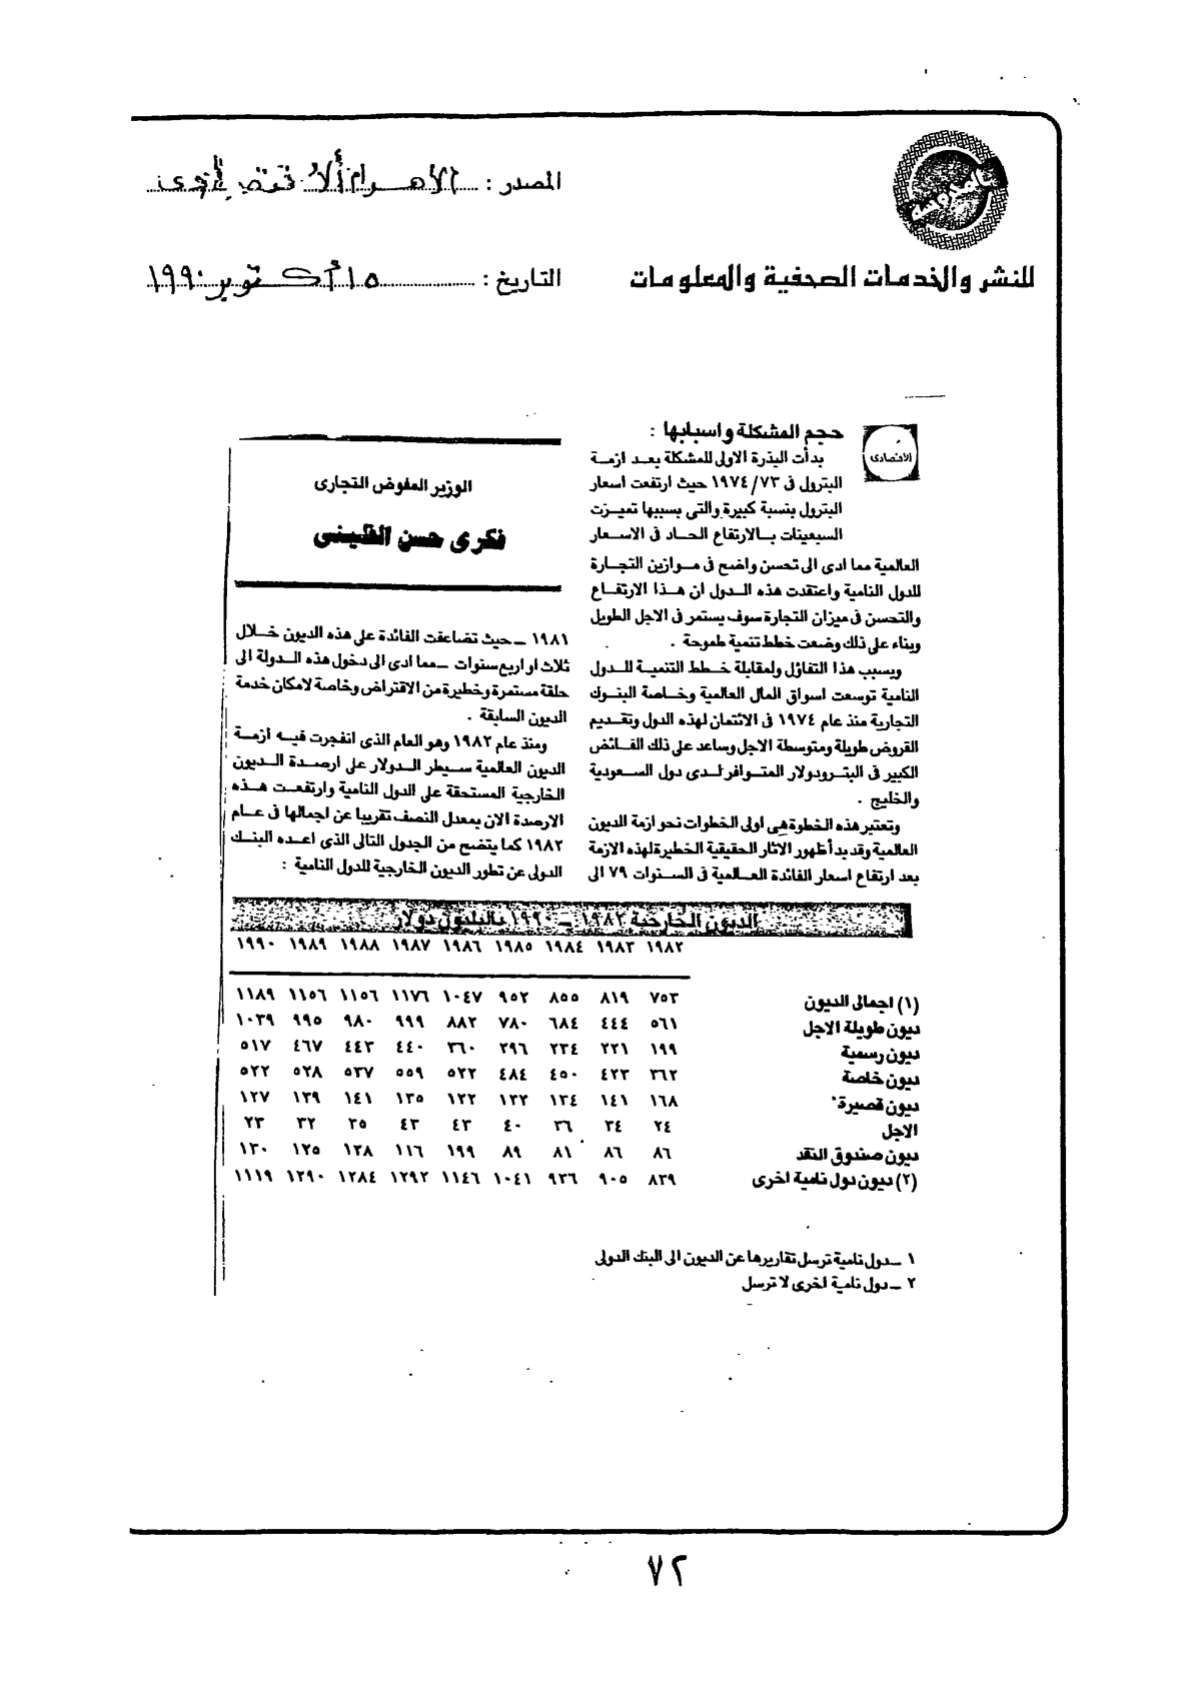 المصدر : الأهرام الاقتصادى
للنشر والخدمات الصحفية والمعلومات
التاريخ : ١٥ أكتوبر ١٩٩٠
الاقتصادى
حجم المشكلة واسبابها :
بدأت البذرة الاولى للمشكلة بعد ازمة
البترول فى ١٩٧٤/٧٣ حيث ارتفعت اسعار
البترول بنسبة كبيرة والتى بسببها تميزت
السبعينات بالارتفاع الحاد فى الاسعار
العالمية مما ادى الى تحسن واضح فى موازين التجارة
للدول النامية واعتقدت هذه الدول ان هذا الارتفاع
والتحسن فى ميزان التجارة سوف يستمر فى الاجل الطويل
وبناء على ذلك وضعت خطط تنمية طموحة .
وبسبب هذا التفاؤل ولمقابلة خطط التنمية للدول
النامية توسعت اسواق المال العالمية وخاصة البنوك
التجارية منذ عام ١٩٧٤ فى الائتمان لهذه الدول وتقديم
القروض طويلة ومتوسطة الاجل وساعد على ذلك الفائض
الكبير فى البترودولار المتوافر لدى دول السعودية
والخليج .
وتعتبر هذه الخطوة هى اولى الخطوات نحو ازمة الديون
العالمية وقد بدأ ظهور الاثار الحقيقية الخطيرة لهذه الازمة
بعد ارتفاع اسعار الفائدة العالمية فى السنوات ٧٩ الى
الوزير المفوض التجارى
فكرى حسن القلينى
١٩٨١ ــ حيث تضاعفت الفائدة على هذه الديون خلال
ثلاث او اربع سنوات ــ مما ادى الى دخول هذه الدولة الى
حلقة مستمرة وخطيرة من الاقتراض وخاصة لامكان خدمة
الديون السابقة .
ومنذ عام ١٩٨٢ وهو العام الذى انفجرت فيه ازمة
الديون العالمية سيطر الدولار على ارصدة الديون
الخارجية المستحقة على الدول النامية وارتفعت هذه
الارصدة الان بمعدل النصف تقريبا عن اجمالها فى عام
١٩٨٢ كما يتضح من الجدول التالى الذى اعده البنك
الدولى عن تطور الديون الخارجية للدول النامية :
الديون الخارجية ١٩٨٢ ــ ١٩٩٠ بالبليون دولار
١٩٨٢ ١٩٨٣ ١٩٨٤ ١٩٨٥ ١٩٨٦ ١٩٨٧ ١٩٨٨ ١٩٨٩ ١٩٩٠
(١) اجمالى الديون ٧٥٣ ٨١٩ ٨٥٥ ٩٥٢ ١٠٤٧ ١١٧٦ ١١٥٦ ١١٥٦ ١١٨٩
ديون طويلة الاجل ٥٦١ ٤٤٤ ٦٨٤ ٧٨٠ ٨٨٢ ٩٩٩ ٩٨٠ ٩٩٥ ١٠٣٩
ديون رسمية ١٩٩ ٢٢١ ٢٣٤ ٢٩٦ ٣٦٠ ٤٤٠ ٤٤٣ ٤٦٧ ٥١٧
ديون خاصة ٣٦٢ ٤٢٣ ٤٥٠ ٤٨٤ ٥٢٢ ٥٥٩ ٥٣٧ ٥٢٨ ٥٢٢
ديون قصيرة ١٦٨ ١٤١ ١٣٤ ١٣٢ ١٢٢ ١٣٥ ١٤١ ١٣٩ ١٢٧
الاجل ٢٤ ٣٤ ٣٦ ٤٠ ٤٣ ٤٣ ٣٥ ٣٢ ٢٣
ديون صندوق النقد ٨٦ ٨٦ ٨١ ٨٩ ١٩٩ ١١٦ ١٣٨ ١٢٥ ١٣٠
(٢) ديون دول نامية اخرى ٨٣٩ ٩٠٥ ٩٣٦ ١٠٤١ ١١٤٦ ١٢٩٢ ١٢٨٤ ١٢٩٠ ١١١٩
١ ــ دول نامية ترسل تقاريرها عن الديون الى البنك الدولى
٢ ــ دول نامية اخرى لا ترسل
٧٢